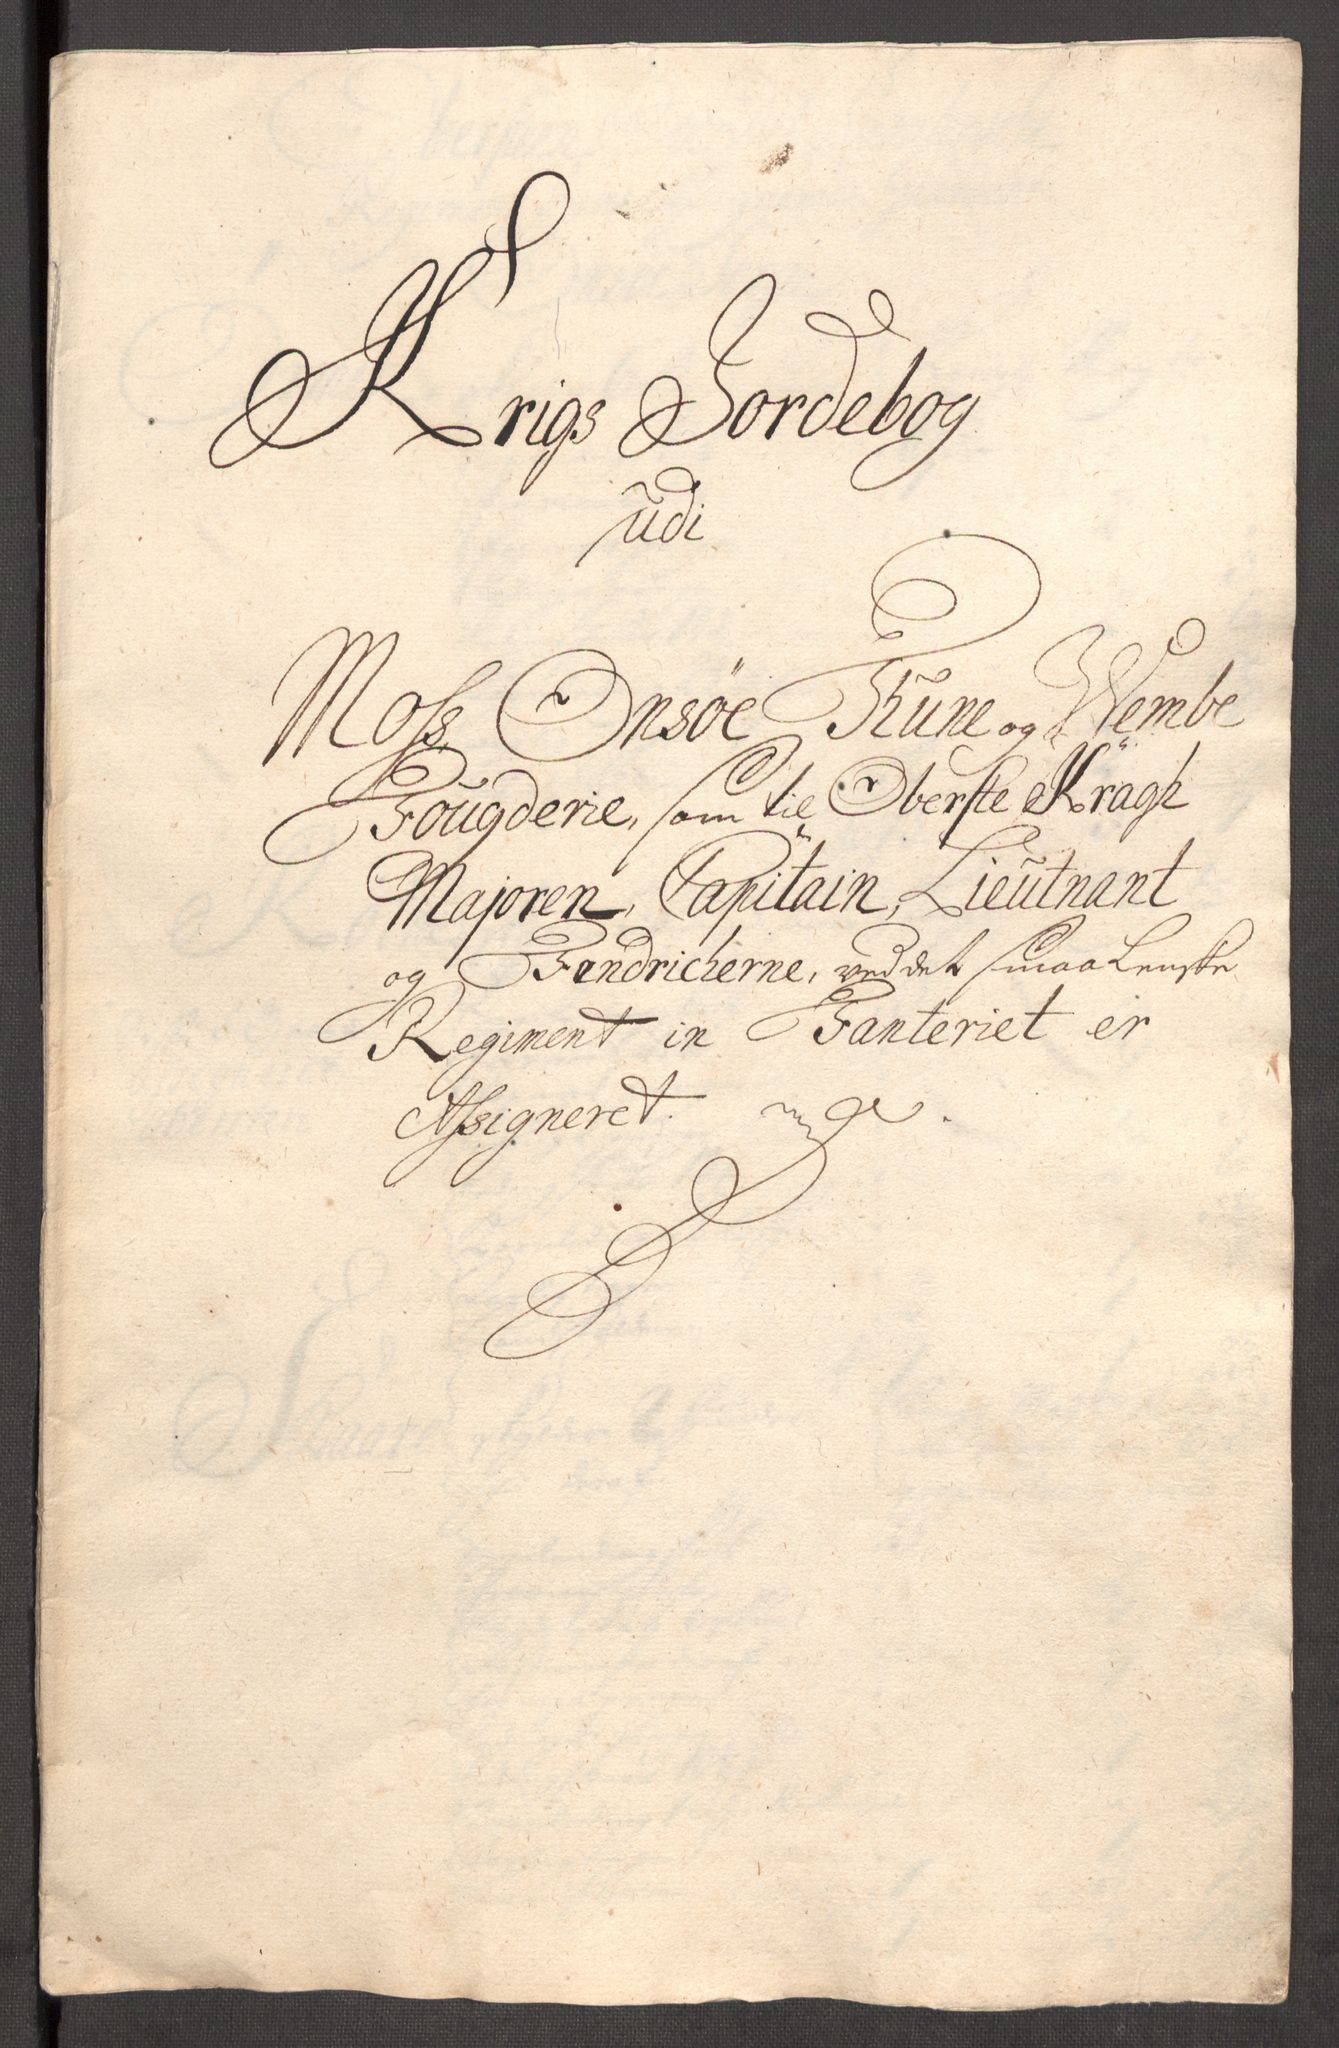 Krigs Jordebog
udi
Moss, Onsøe Thune og Wembe
Fougderie, som til Oberste Kragh
Majoren, Capitain, Lieutnant
og Fendricherne, ved det Smaa Lenske
Regiment in Fanteriet er
Assigneret.